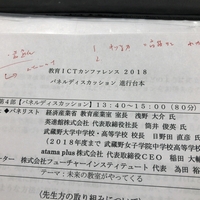 教育ICTカンファレンス 2018
パネルディスカッション 進行台本
第4部【パネルディスカッション】13:40～15:00(80分)
◆パネリスト 経済産業省 教育産業室 室長 浅野 大介 氏
英進館株式会社 代表取締役社長 筒井 俊英 氏
武蔵野大学中学校・高等学校 校長 日野田 直彦 氏
(2018年度まで 武蔵野女子学院中学校高等学校
atama plus 株式会社 代表取締役CEO 稲田 大輔
ーター 株式会社フューチャーインスティテュート 為田 裕
テーマ:未来の教室がやってくる
(先生方の取り組みについて)